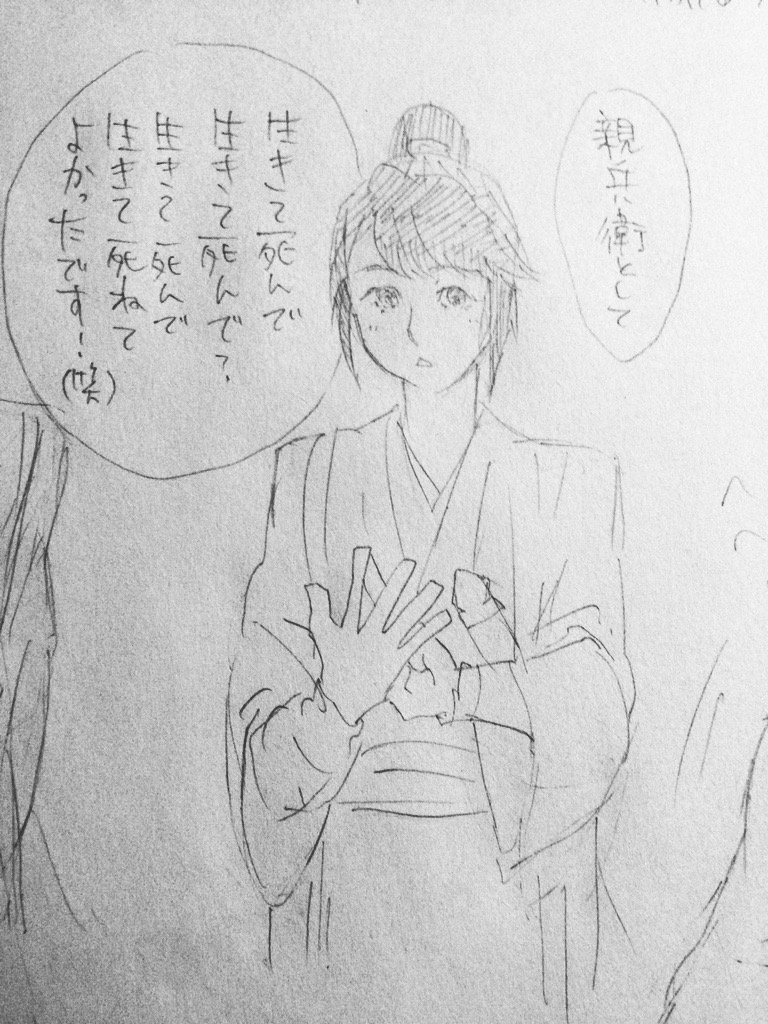 親兵衛として
生きて死んで
生きて死んで？
生きて死んで
生きて死ねて
よかったです！
(笑)